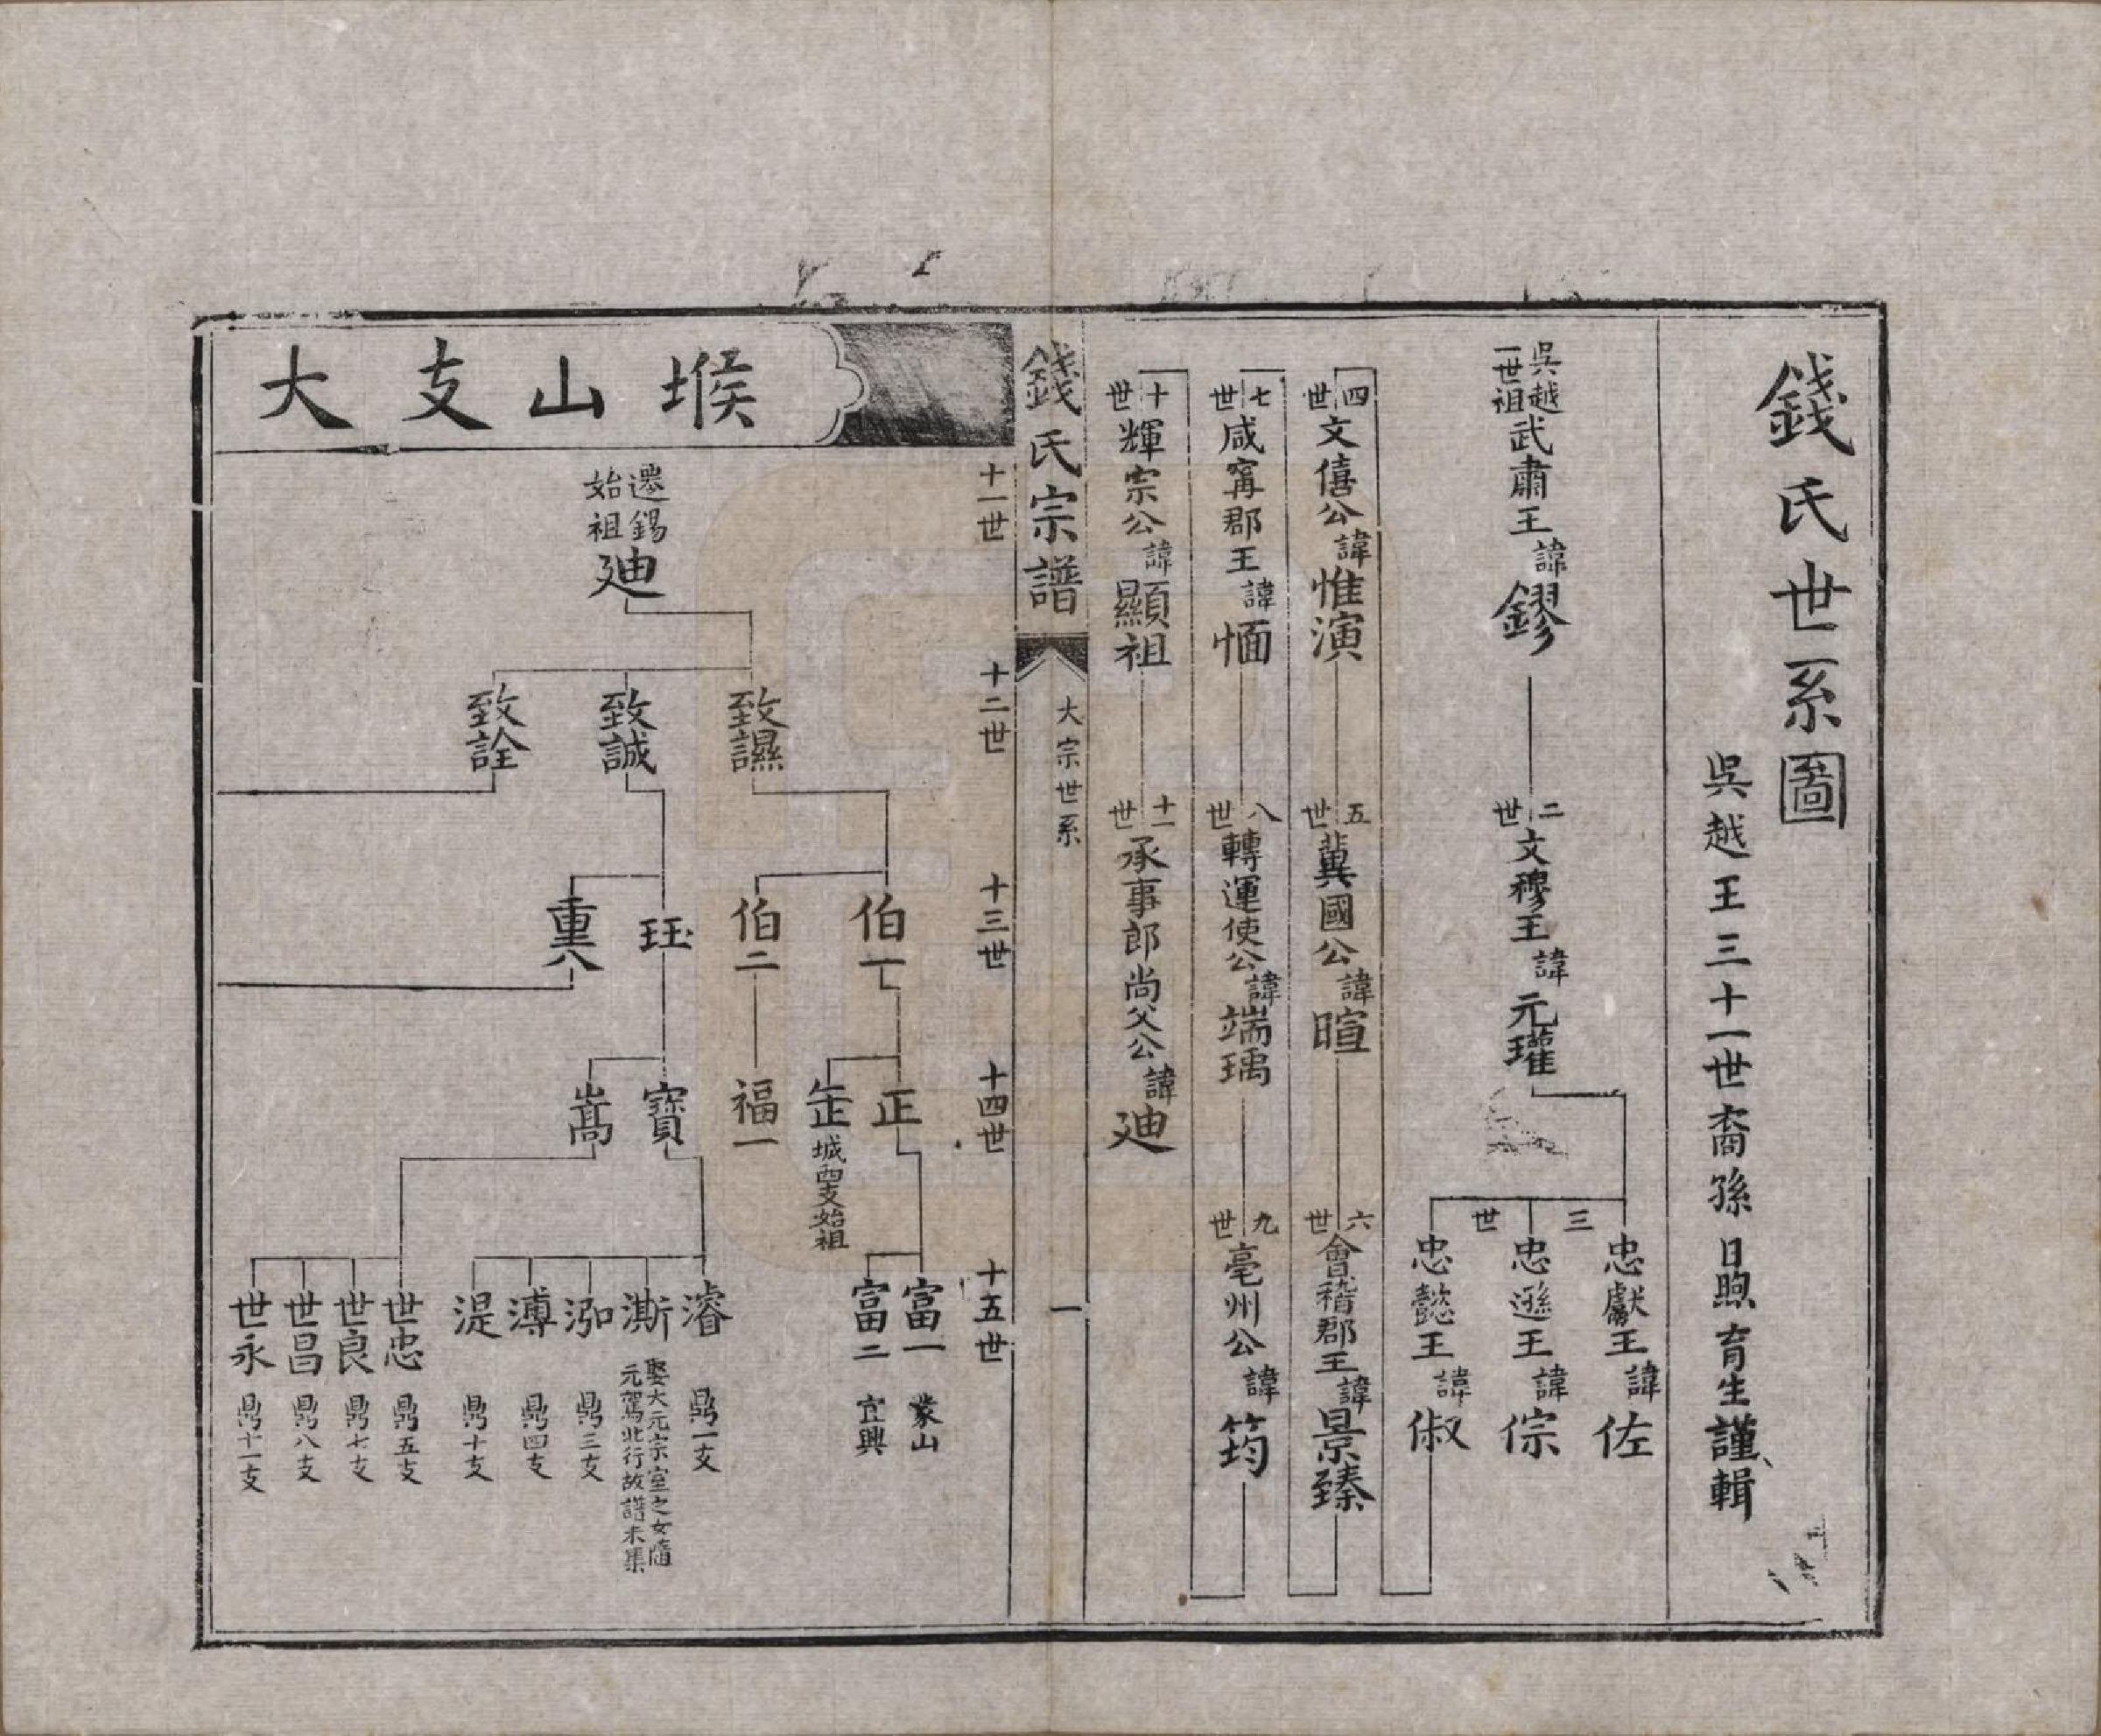 錢氏世系圖
吳越王三十一世裔孫日煦育生謹輯
吳越一世祖武肅王諱鏐
二世文穆王諱元瓘
三世
忠獻王諱佐
忠遜王諱倧
忠懿王諱俶
四世文僖公諱惟演
五世冀國公諱暄
六世會稽郡王諱景臻
七世咸寗郡王諱愐
八世轉運使公諱端瑀
九世亳州公諱筠
十世輝宗公諱顯祖
十一世承事郎尚父公諱迪
錢氏宗譜
大宗世系
一
堠山支大
十一世
十二世
十三世
十四世
十五世
遷錫始祖迪
致譅
致誠
致詮
伯一
伯二
珏
重八
正
㱏城西支始祖
福一
寶
嵩
富一 蒙山
富二 宜興
濬 鼎一支
澌 娶大元宗室之女隨元駕北行故譜未集
泓 鼎三支
溥 鼎四支
湜 鼎十支
世忠 鼎五支
世良 鼎七支
世昌 鼎八支
世永 鼎十一支